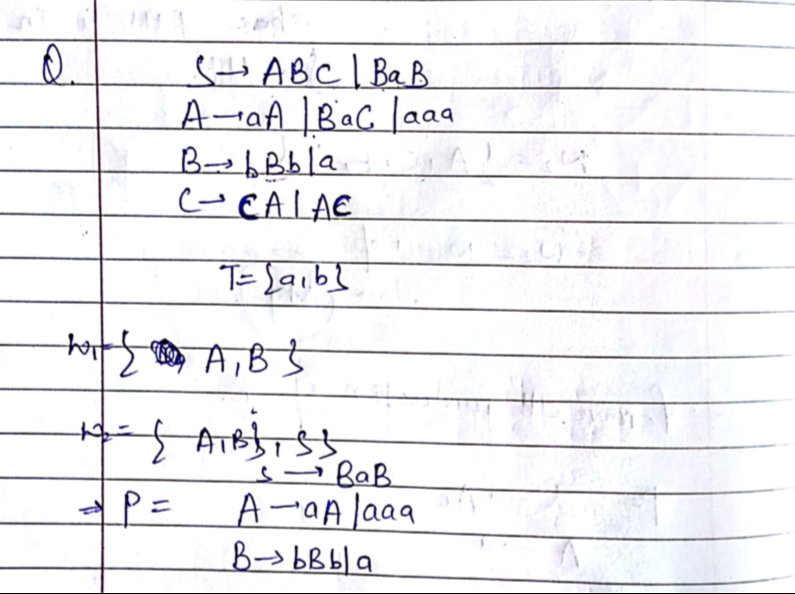 Q. S → ABC | BaB
A → aA | BaC | aaa
B → bBb | a
C → CA | AC
T = {a, b}
w₁ = { A, B }
w₂ = { A, B}, S }
S → BaB
⇒ P = A → aA | aaa
B → bBb | a